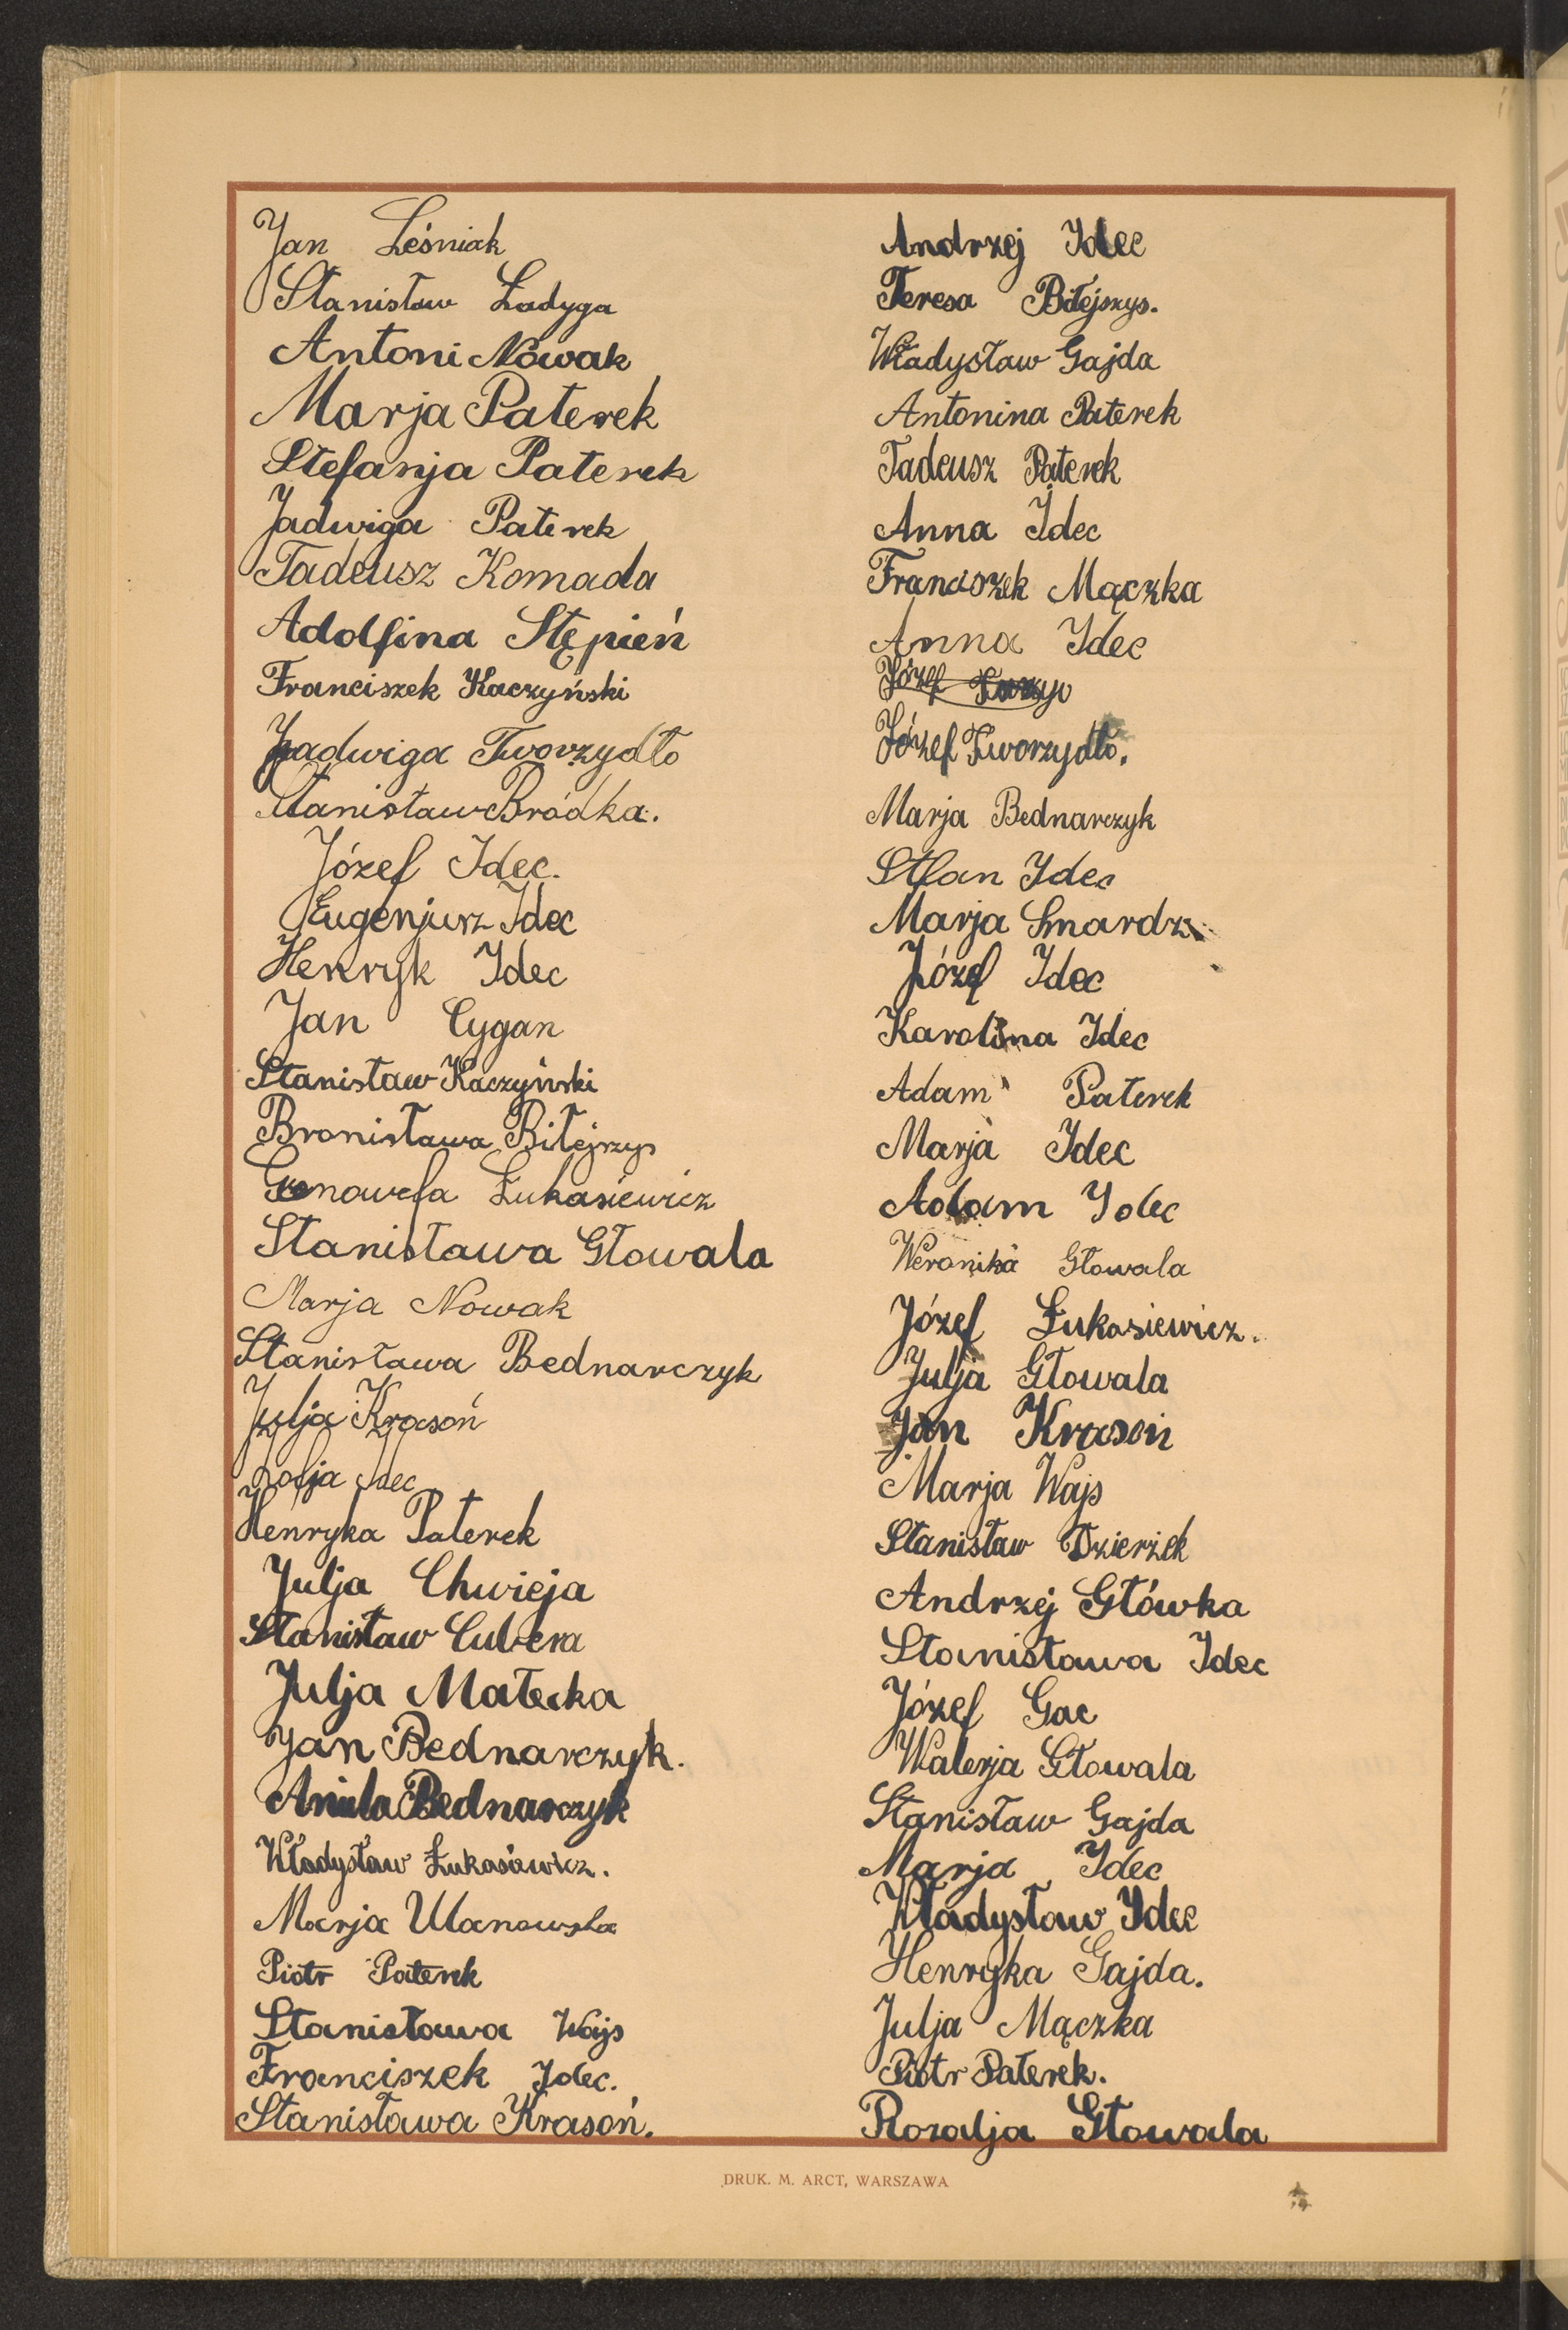 Jan Leśniak
Stanisław Ładyga
Antoni Nowak
Marja Paterek
Stefanja Paterek
Jadwiga Paterek
Tadeusz Komada
Adolfina Stępień
Franciszek Kaczyński
Jadwiga Tworzydło
Stanisław Bródka.
Józef Idec.
Eugenjusz Idec
Henryk Idec
Jan Cygan
Stanisław Kaczyński
Bronisława Biłejszys
Genowefa Łukasiewicz
Stanisława Głowala
Marja Nowak
Stanisława Bednarczyk
Julja Krasoń
Idec
Henryka Paterek
Julja Chwieja
Stanisław Cubera
Julja Małecka
Jan Bednarczyk.
Aniela Bednarczyk
Władysław Łukasiewicz.
Marja Ulanowska
Piotr Paterek
Stanisława Wajs
Franciszek Idec.
Stanisława Krasoń.
Andrzej Idec
Teresa Biłejszys.
Władysław Gajda
Antonina Paterek
Tadeusz Paterek
Anna Idec
Franciszek Mączka
Anna Idec
Józef
Józef Tworzydło.
Marja Bednarczyk
Stfan Idec
Marja Smardz
Józef Idec
Karolina Idec
Adam Paterek
Marja Idec
Adam Idec
Weronika Głowala
Józef Łukasiewicz.
Julja Głowala
Jan Krasoń
Marja Wajs
Stanisław Dzierżek
Andrzej Główka
Stanisława Idec
Józef Gac
Walerja Głowala
Stanisław Gajda
Marja Idec
Władysław Idec
Henryka Gajda.
Julja Mączka
Piotr Paterek.
Rozalja Głowala
DRUK. M. ARCT, WARSZAWA